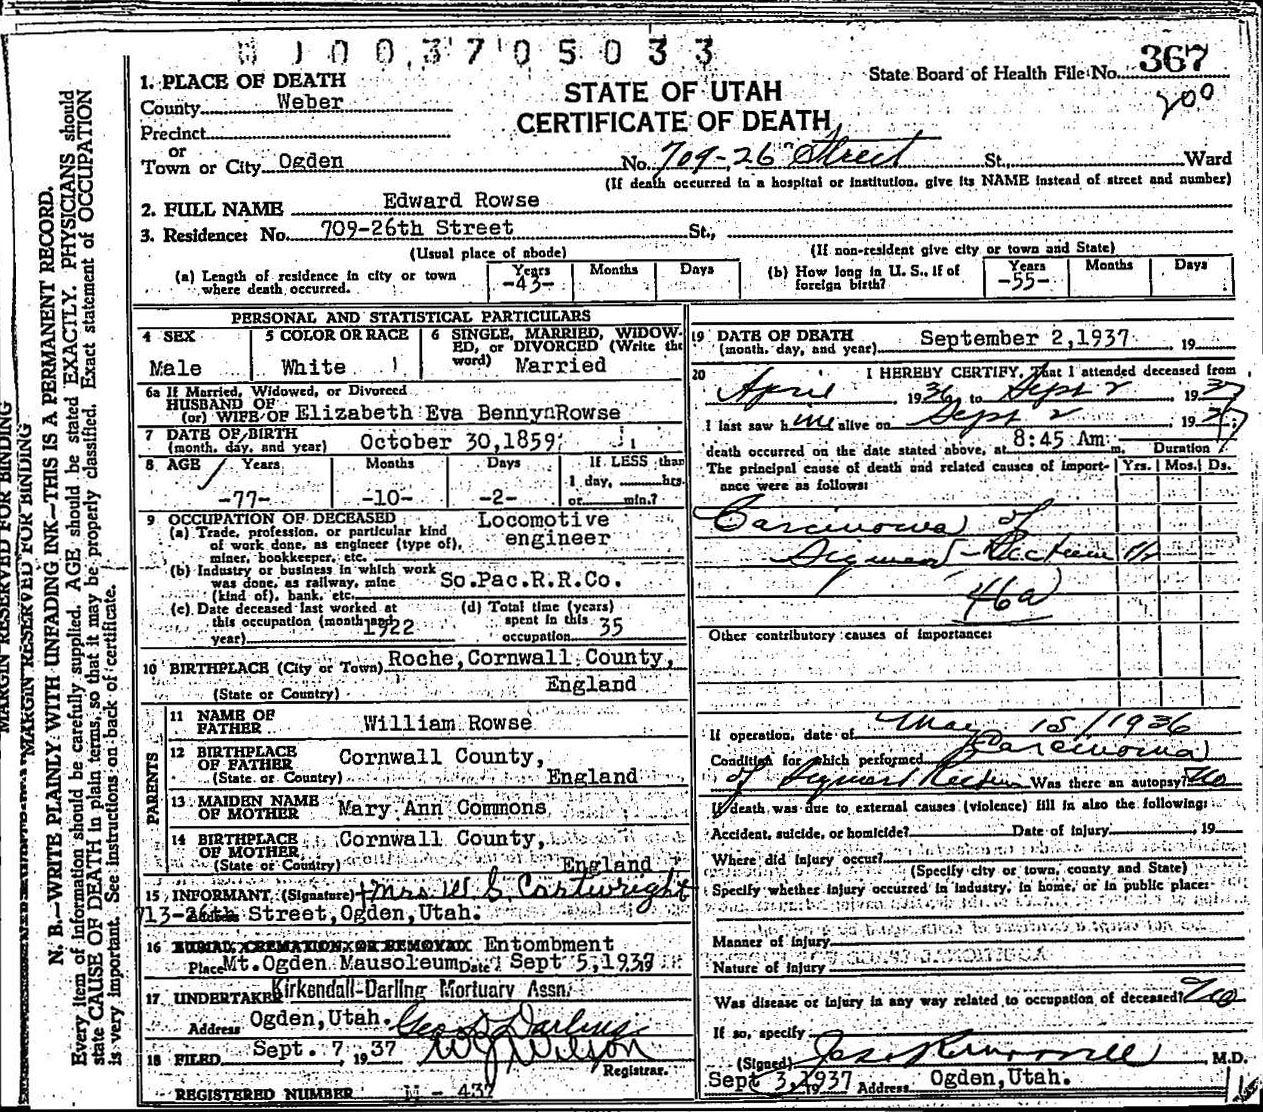 MARGIN RESERVED FOR BINDING
MARGIN RESERVED FOR BINDING
N. B.—WRITE PLAINLY WITH UNFADING INK—THIS IS A PERMANENT RECORD.
Every item of information should be carefully supplied. AGE should be stated EXACTLY. PHYSICIANS should
state CAUSE OF DEATH in plain terms, so that it may be properly classified. Exact statement of OCCUPATION
is very important. See instructions on back of certificate.
1003705033
State Board of Health File No. 367
200
STATE OF UTAH
CERTIFICATE OF DEATH
1. PLACE OF DEATH
County Weber
Precinct
or
Town or City Ogden No. 709-26th Street St., Ward
(If death occurred in a hospital or institution, give its NAME instead of street and number)
2. FULL NAME Edward Rowse
3. Residence: No. 709-26th Street St.,
(Usual place of abode) (If non-resident give city or town and State)
(a) Length of residence in city or town where death occurred. Years -43- Months Days
(b) How long in U. S., if of foreign birth? Years -55- Months Days
PERSONAL AND STATISTICAL PARTICULARS
4 SEX Male
5 COLOR OR RACE White
6 SINGLE, MARRIED, WIDOWED, or DIVORCED (Write the word) Married
6a If Married, Widowed, or Divorced
HUSBAND OF
(or) WIFE OF Elizabeth Eva Benny Rowse
7 DATE OF BIRTH
(month, day, and year) October 30,1859
8 AGE Years -77- Months -10- Days -2- If LESS than 1 day, hrs. or min.?
9 OCCUPATION OF DECEASED
(a) Trade, profession, or particular kind of work done, as engineer (type of), miner, bookkeeper, etc. Locomotive engineer
(b) Industry or business in which work was done, as railway, mine (kind of), bank, etc. So.Pac.R.R.Co.
(c) Date deceased last worked at this occupation (month and year) 1922
(d) Total time (years) spent in this occupation 35
10 BIRTHPLACE (City or Town) Roche, Cornwall County,
(State or Country) England
PARENTS
11 NAME OF FATHER William Rowse
12 BIRTHPLACE OF FATHER Cornwall County,
(State or Country) England
13 MAIDEN NAME OF MOTHER Mary Ann Commons
14 BIRTHPLACE OF MOTHER Cornwall County,
(State or Country) England
15 INFORMANT (Signature) Mrs W. S. Cartwright
Address 713-26th Street, Ogden, Utah.
16 BURIAL CREMATION OR REMOVAL Entombment
Place Mt.Ogden Mausoleum Date Sept 5, 1937
17 UNDERTAKER Kirkendall-Darling Mortuary Assn.
Address Ogden, Utah. Geo Darling
18 FILED Sept. 7, 1937 W J Wilson
Registrar.
REGISTERED NUMBER M - 437
19 DATE OF DEATH
(month, day, and year) September 2,1937 19
20 I HEREBY CERTIFY, That I attended deceased from
April 1936 to Sept 2 1937
I last saw him alive on Sept 2 1937
death occurred on the date stated above, at 8:45 Am m. Duration
The principal cause of death and related causes of importance were as follows: Yrs. Mos. Ds.
Carcinoma of
Sigmoid-Rectum
46a
Other contributory causes of importance:
If operation, date of May 15/1936
Condition for which performed Carcinoma
of Sigmoid Rectum Was there an autopsy? No
If death was due to external causes (violence) fill in also the following:
Accident, suicide, or homicide? Date of injury , 19
Where did injury occur?
(Specify city or town, county and State)
Specify whether injury occurred in industry, in home, or in public place:
Manner of injury
Nature of injury
Was disease or injury in any way related to occupation of deceased? No
If so, specify
(Signed) M.D.
Sept 3, 1937 Address Ogden, Utah.